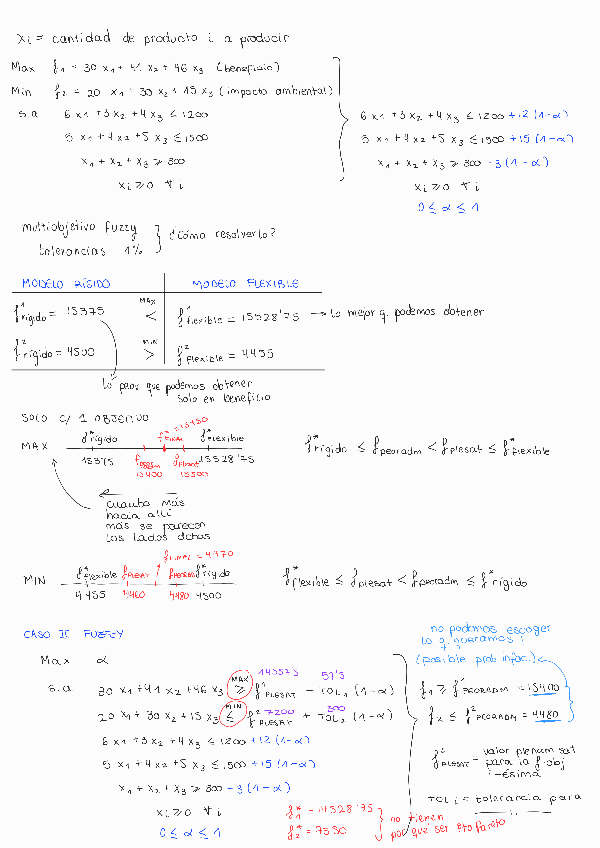 Xi = cantidad de producto i a producir
Max f1 = 30 x1 + 41 x2 + 46 x3 (beneficio)
Min f2 = 20 x1 + 30 x2 + 15 x3 (impacto ambiental)
s.a 6 x1 + 3 x2 + 4 x3 ≤ 1200
5 x1 + 4 x2 + 5 x3 ≤ 1500
x1 + x2 + x3 ≥ 300
xi ≥ 0 ∀ i
6 x1 + 3 x2 + 4 x3 ≤ 1200 + 12 (1-α)
5 x1 + 4 x2 + 5 x3 ≤ 1500 + 15 (1-α)
x1 + x2 + x3 ≥ 300 - 3 (1-α)
xi ≥ 0 ∀ i
0 ≤ α ≤ 1
multiobjetivo fuzzy
tolerancias 1%
¿Cómo resolverlo?
MODELO RÍGIDO MODELO FLEXIBLE
f1 rígido = 15375 MAX < f1 flexible = 15528'75 → lo mejor q. podemos obtener
f2 rígido = 4500 MIN > f2 flexible = 4455
lo peor que podemos obtener
solo en beneficio
SOLO C/ 1 OBJETIVO
fFINAL = 15450
MAX f* rígido f* flexible
15375 fpeoradm fplesat 15528'75
15400 15500
f* rígido ≤ fpeoradm < fplesat ≤ f* flexible
cuanto más
hacia allí
más se parecen
los lados dchos
fFINAL = 4470
MIN f* flexible fPLESAT fPEORADM f* rígido
4455 4460 4480 4500
f* flexible ≤ fplesat < fpeoradm ≤ f* rígido
CASO II FUZZY
Max α
s.a 30 x1 + 41 x2 + 46 x3 ≥ f1 PLESAT - TOL1 (1-α)
MAX
20 x1 + 30 x2 + 15 x3 ≤ f2 PLESAT + TOL2 (1-α)
MIN 7200 300
6 x1 + 3 x2 + 4 x3 ≤ 1200 + 12 (1-α)
5 x1 + 4 x2 + 5 x3 ≤ 1500 + 15 (1-α)
x1 + x2 + x3 ≥ 300 - 3 (1-α)
xi ≥ 0 ∀ i
0 ≤ α ≤ 1
f1* = 14328'75
f2* = 7350
no tienen
por qué ser pto pareto
no podemos escoger
lo q. queramos !
(posible prob infac.)
f1 ≥ f1 PEORADM = 15400
f2 ≤ f2 PEORADM = 4480
fi PLESAT = valor plenam sat
para la f. obj
i-ésima
TOL i = tolerancia para